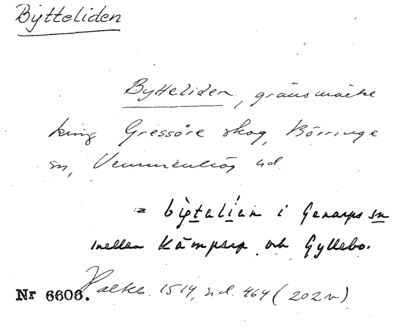 Bytteliden
Bytteliden, gränsmärke
kring Gressöre skog, Börringe
sn, Vemmenhög hd.
= býtalíen i Genarps sn
mellan Kämpsrp och Gyllebo.
Nr 6606. Falke. 1514, sid. 464 (202v)